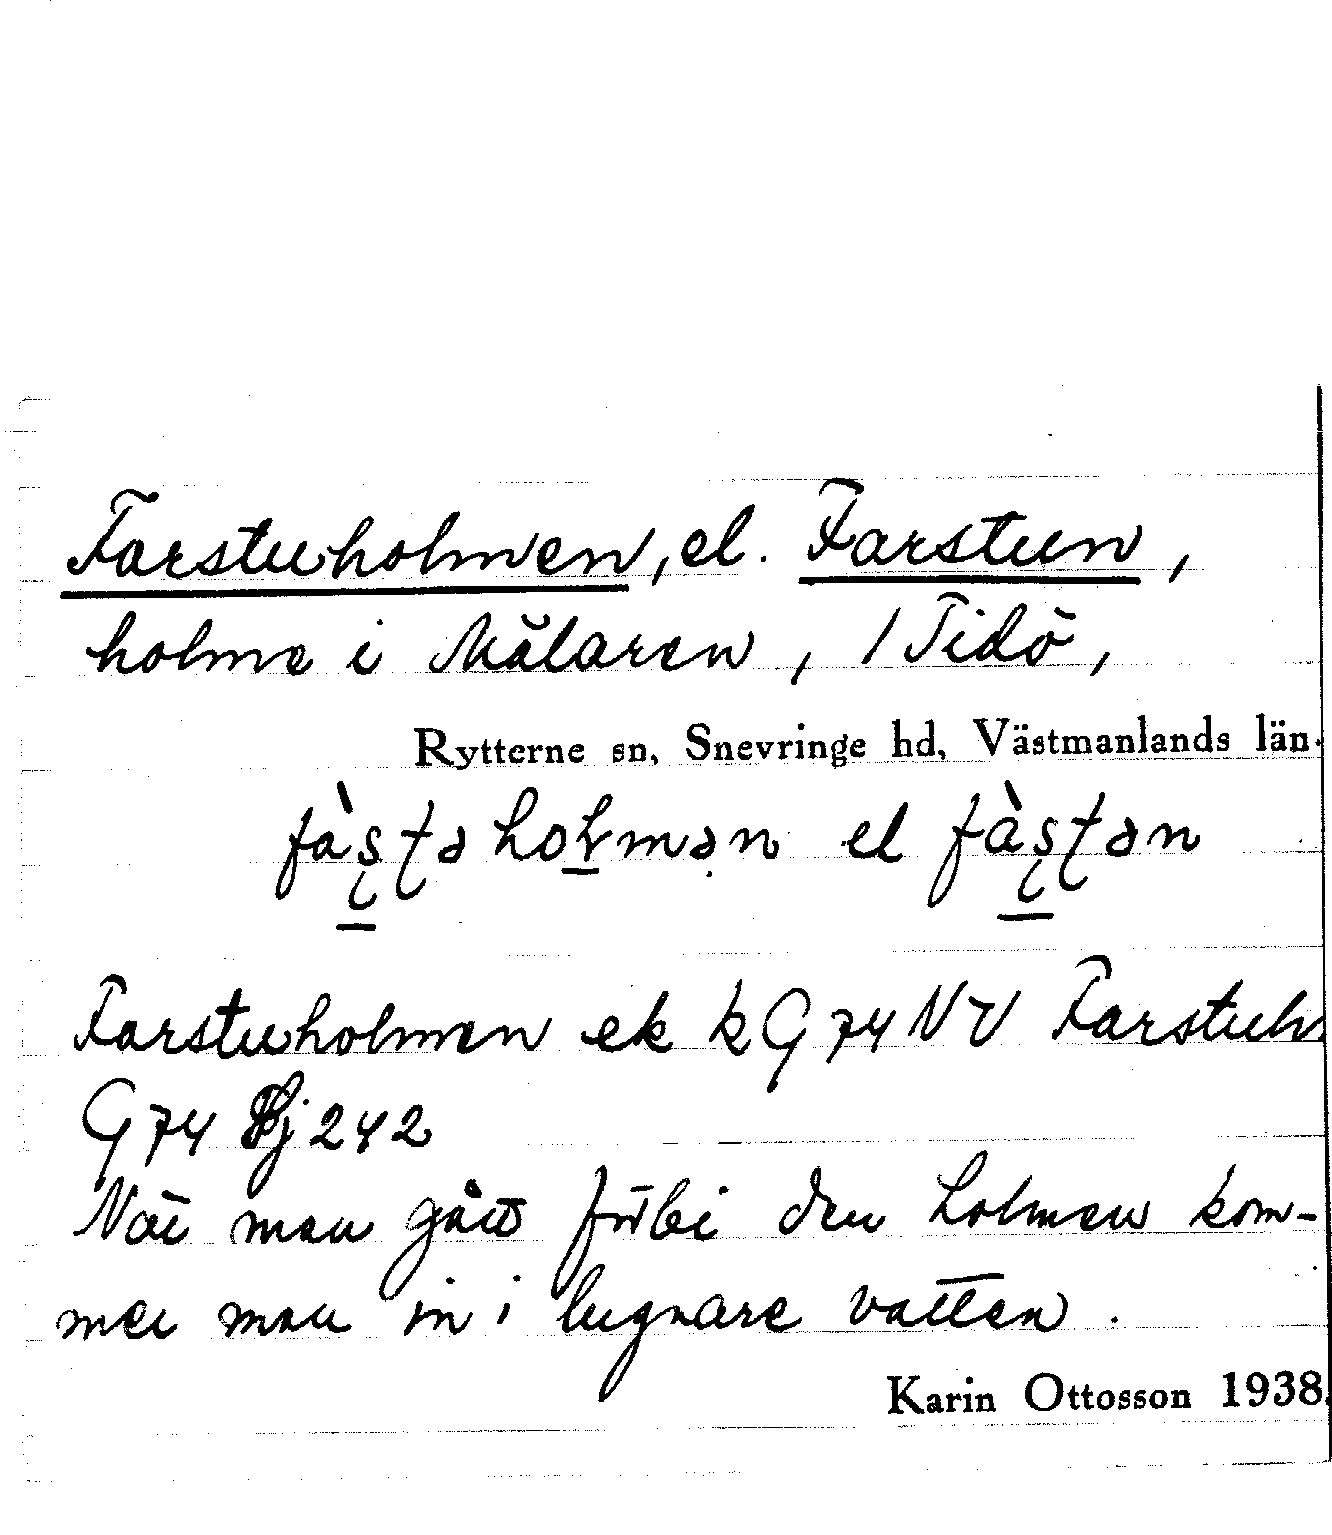 Farstuholmen, el. Farstun,
holme i Mälaren, / Tidö,
Rytterne sn, Snevringe hd, Västmanlands län.
Farstuholmen ek k G 74 NV Farstuh
G 74 Hj 242
När man gått förbi den holmen kom-
mer man in i lugnare vatten.
Karin Ottosson 1938.